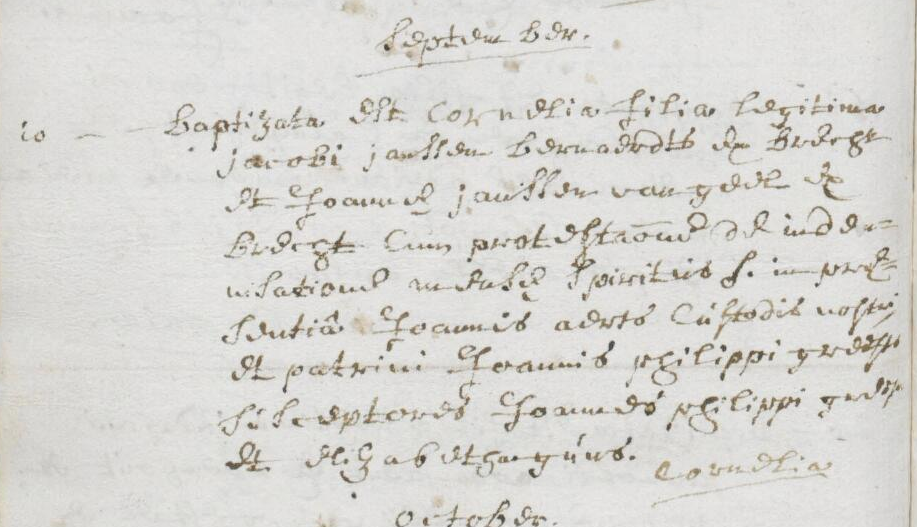 September.
10 - - Baptizata est Cornelia filia legitima
jacobi janssen bernaerdts ex brecht
et Joannę janssen van geel ex
brecht cum protestaõne de indem=
nisatione mensę Spiritus S. in prę=
sentiâ Joannis aerts Custodis nostri
et patrini Joannis philippi
susceptores Joannes philippi
et elizabetha
Cornelia
october.